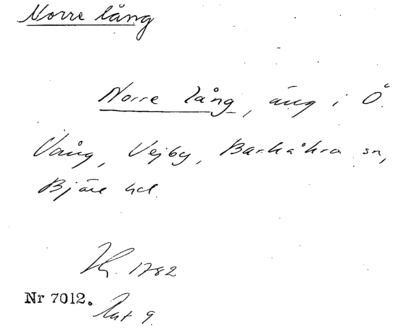 Norre lång
Norre lång, äng i Ö.
Vång, Vejby, Barkåkra sn,
Bjäre hd.
1782
Nr 7012. Akt 9.